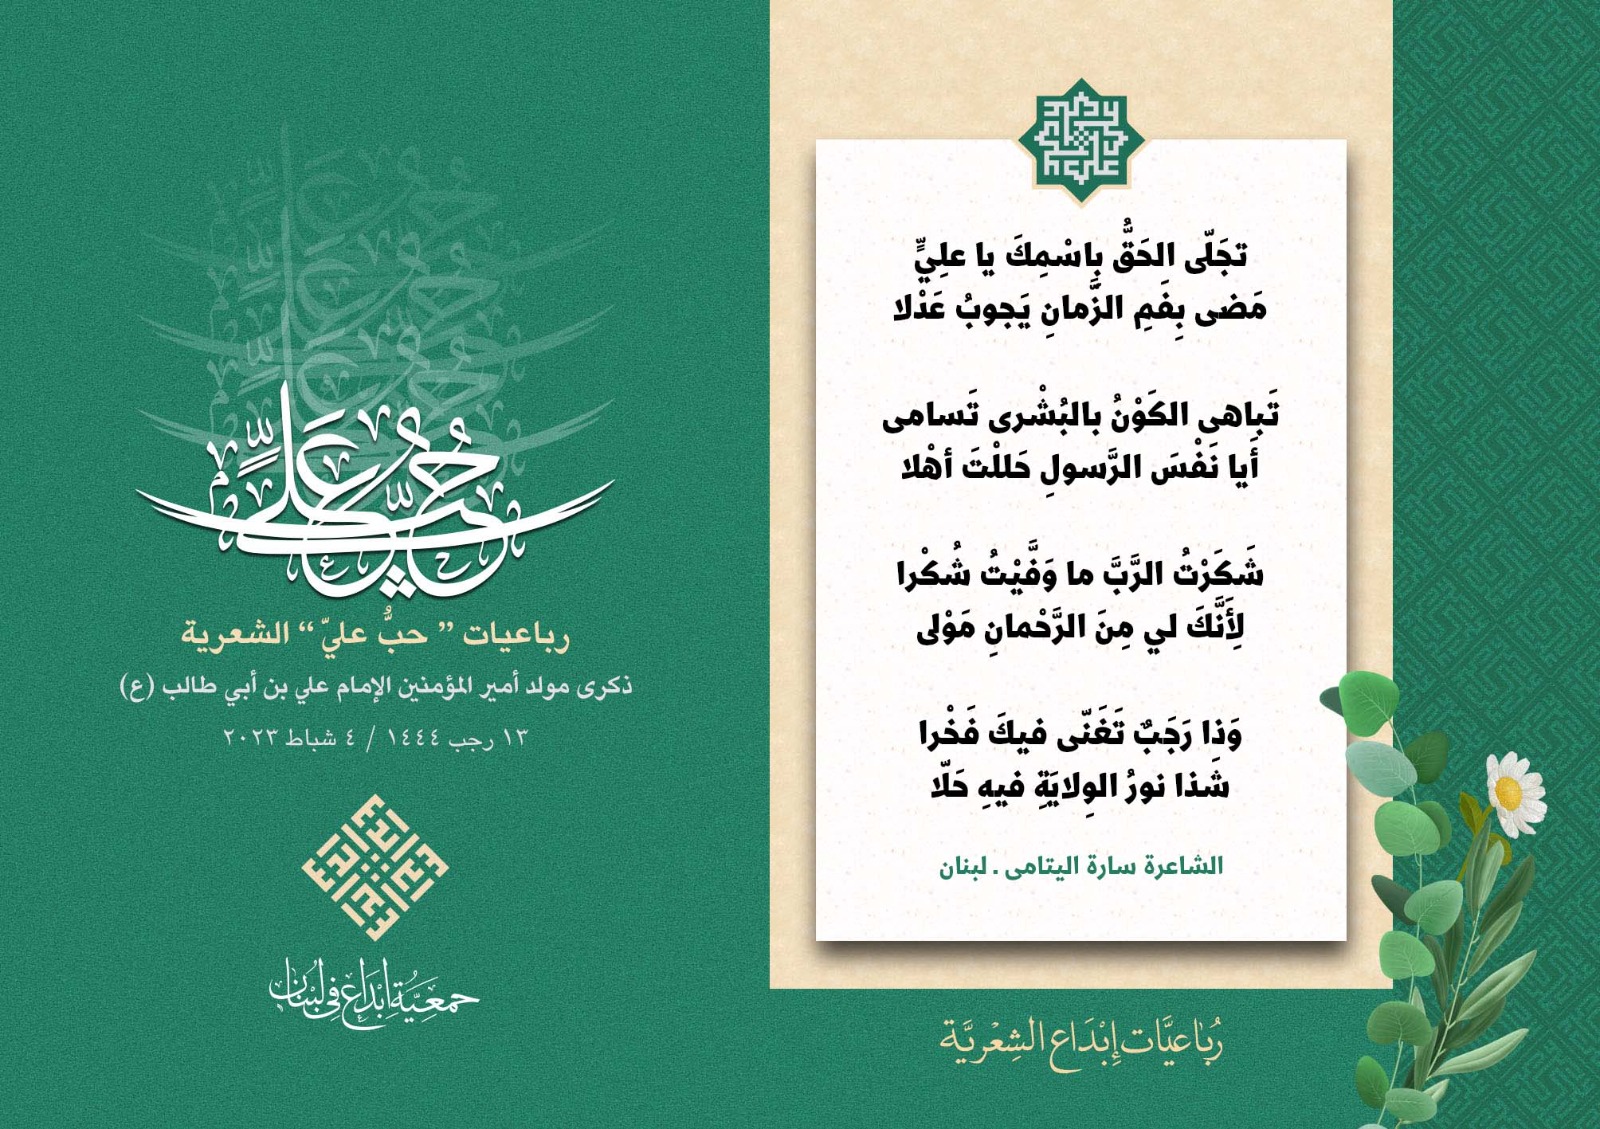 تجَلّى الحَقُّ بِاسْمِكَ يا علِيٍّ
مَضى بِفَمِ الزَّمانِ يَجوبُ عَدْلا
تَباهى الكَوْنُ بالبُشْرى تَسامى
أَيا نَفْسَ الرَّسولِ حَللْتَ أهْلا
شَكَرْتُ الرَّبَّ ما وَفَّيْتُ شُكْرا
لِأَنَّكَ لي مِنَ الرَّحْمانِ مَوْلى
وَذِا رَجَبٌ تَغَنّى فيكَ فَخْرا
شَذا نورُ الوِلايَةِ فيهِ حَلّا
الشاعرة سارة اليتامى . لبنان
رُبَاعيَّات إِبْدَاع الشِعْريَّة
حُبُّ عَلِيٍّ
رباعيات ” حبُّ عليّ “ الشعرية
ذكرى مولد أمير المؤمنين الإمام علي بن أبي طالب (ع)
١٣ رجب ١٤٤٤ / ٤ شباط ٢٠٢٣
جمعيَّة إبْدَاع في لبْنان